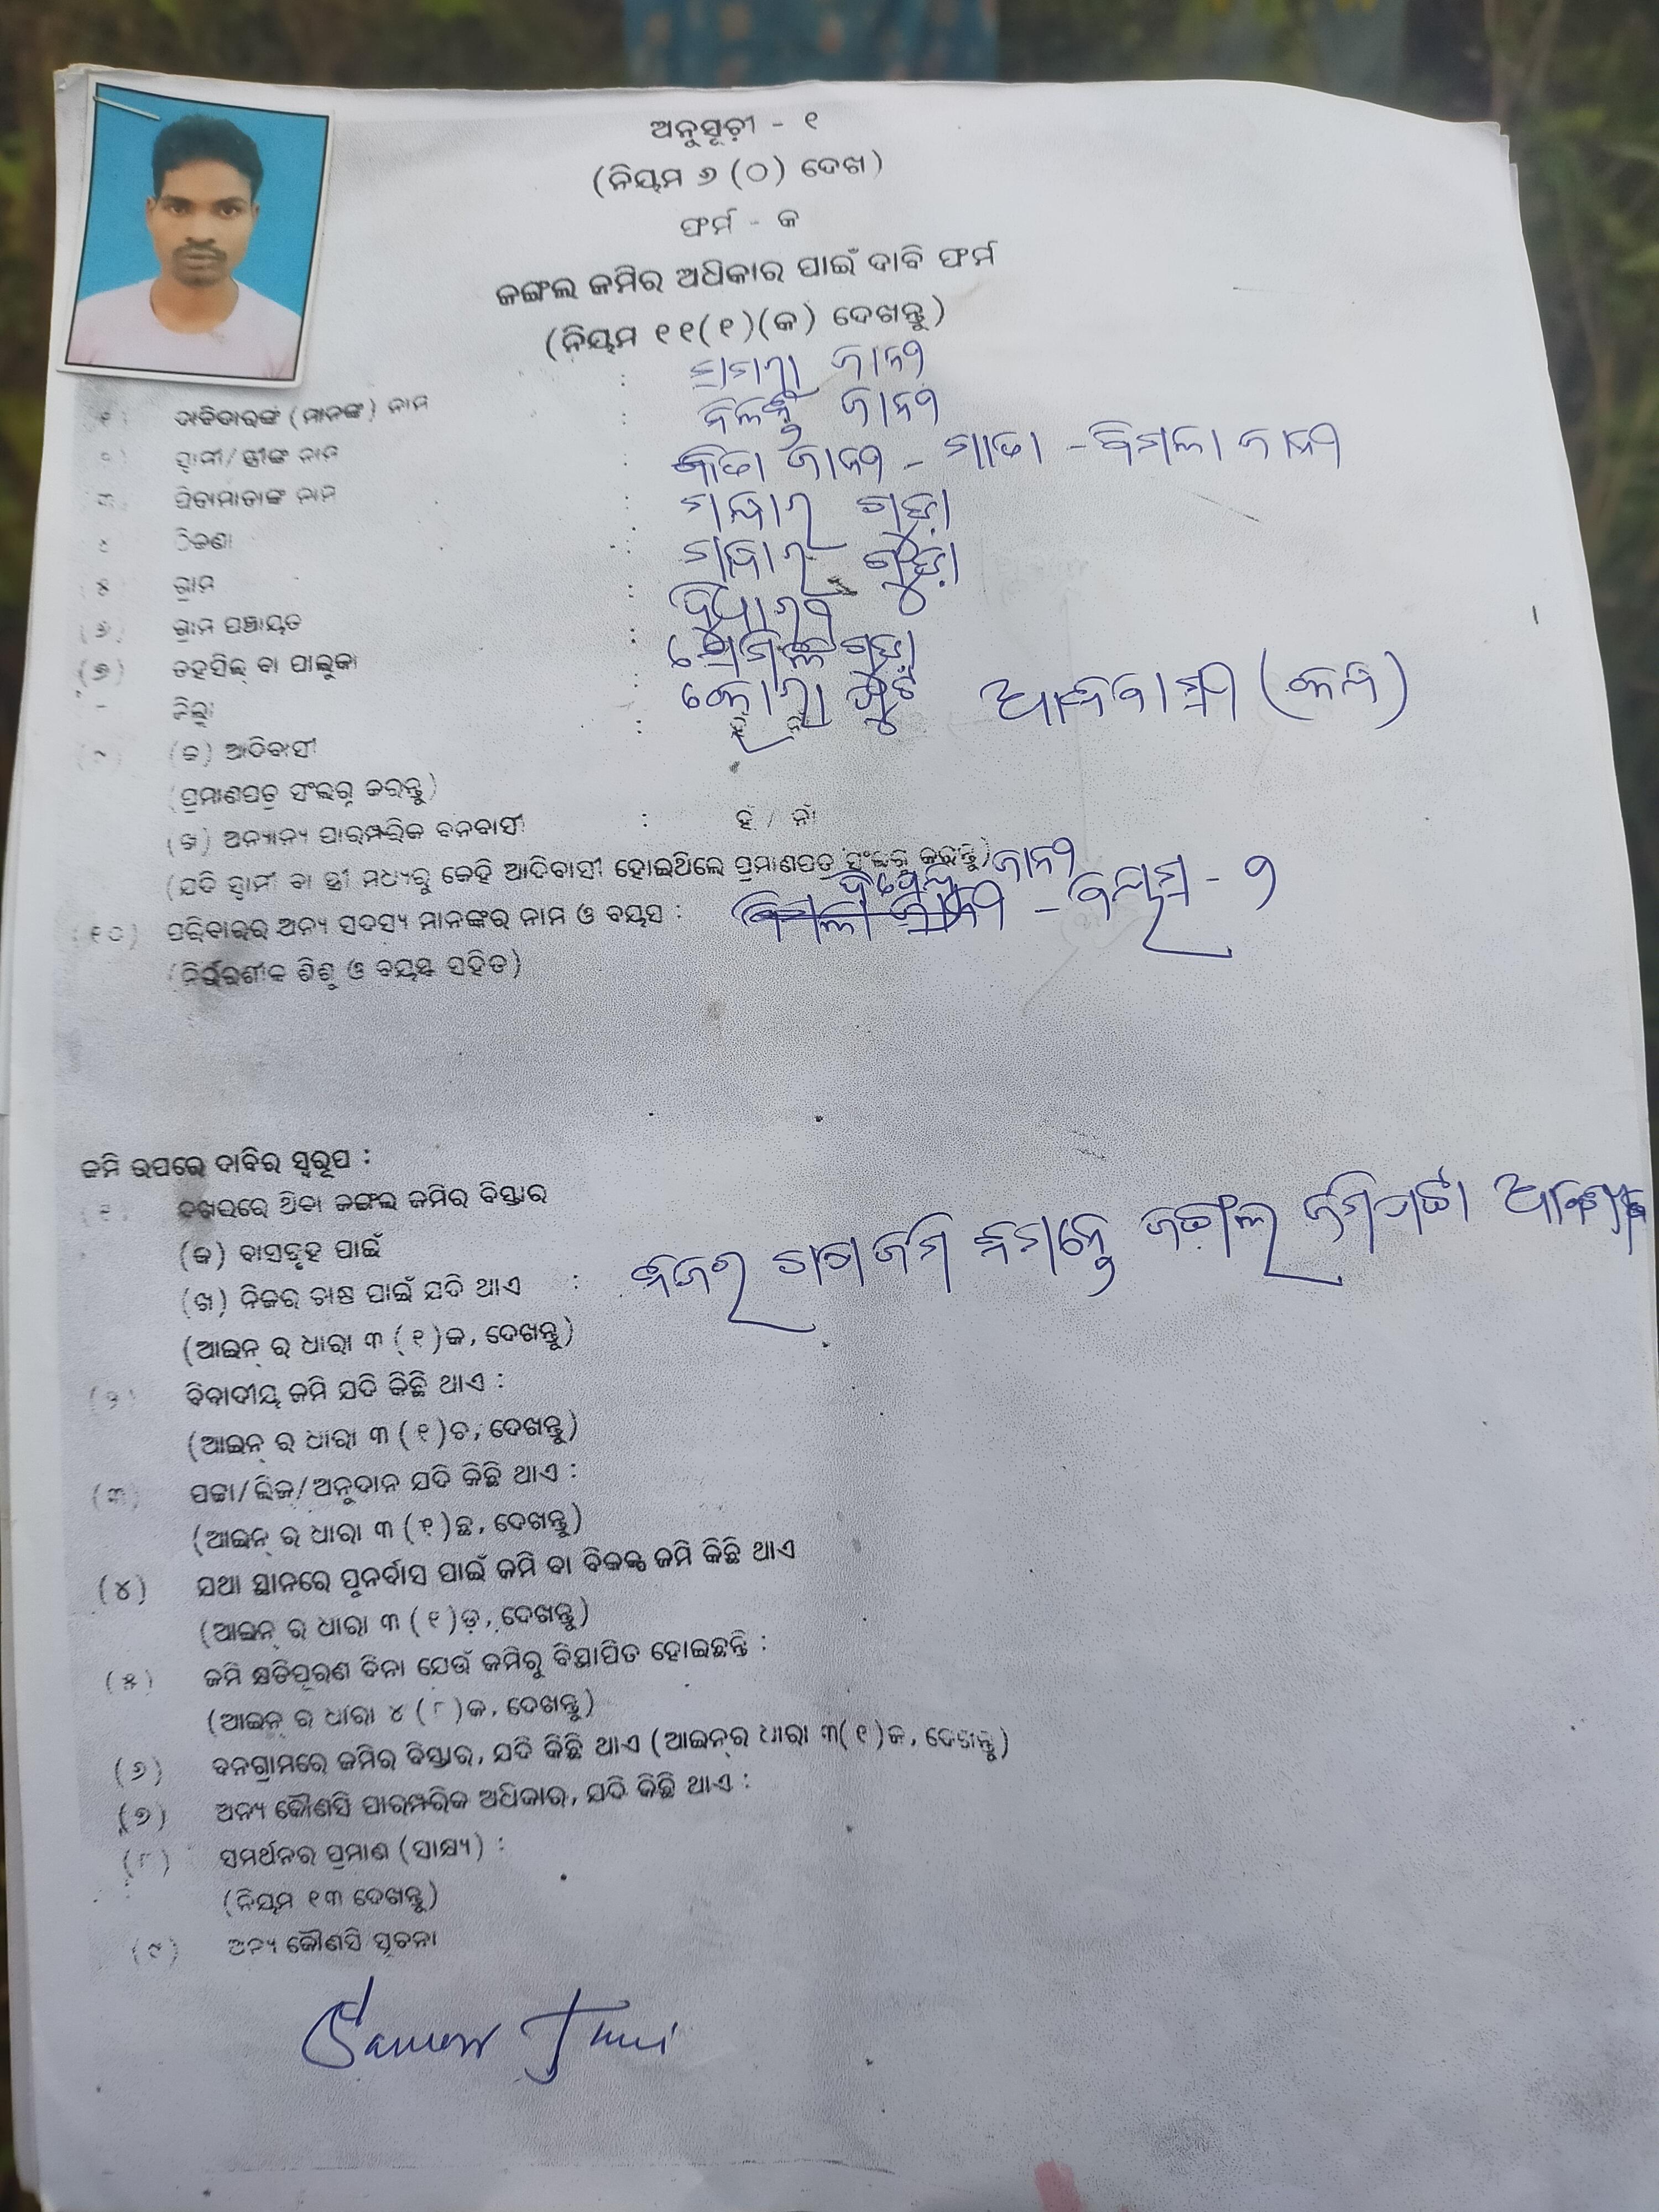 ଅନୁସୂଚୀ - ୧
(ନିୟମ ୬ (୦) ଦେଖ)
ଫର୍ମ - କ
ଜଙ୍ଗଲ ଜମିର ଅଧିକାର ପାଇଁ ଦାବି ଫର୍ମ
(ନିୟମ ୧୧(୧)(କ) ଦେଖନ୍ତୁ)
୧) ଦାବିଦାରଙ୍କ (ମାନଙ୍କ) ନାମ : ଜାନୀ
ସ୍ୱାମୀ/ ସ୍ତ୍ରୀଙ୍କ ନାମ : ଜାନୀ
୩) ପିତାମାତାଙ୍କ ନାମ : ଜାନୀ - ମାତା - ବିମଳା ଜାନୀ
ଠିକଣା : ଗୁଡ଼ା
୫ ଗ୍ରାମ : ଗୁଡ଼ା
(୬) ଗ୍ରାମ ପଞ୍ଚାୟତ : ଦୁଧାରୀ
(୭) ତହସିଲ୍ ବା ତାଲୁକା : ସେମିଳିଗୁଡ଼ା
ଜିଲ୍ଲା : କୋରାପୁଟ
(କ) ଆଦିବାସୀ : ହଁ / ନାଁ ଆଦିବାସୀ
(ପ୍ରମାଣପତ୍ର ସଂଲଗ୍ନ କରନ୍ତୁ)
(ଖ) ଅନ୍ୟାନ୍ୟ ପାରମ୍ପରିକ ବନବାସୀ : ହଁ / ନାଁ
(ଯଦି ସ୍ୱାମୀ ବା ସ୍ତ୍ରୀ ମଧ୍ୟରୁ କେହି ଆଦିବାସୀ ହୋଇଥିଲେ ପ୍ରମାଣପତ୍ର ସଂଲଗ୍ନ କରନ୍ତୁ)
(୧୦) ପରିବାରର ଅନ୍ୟ ସଦସ୍ୟ ମାନଙ୍କର ନାମ ଓ ବୟସ : ଜାନୀ - ବୟସ - ୨
(ନିର୍ଭରଶୀଳ ଶିଶୁ ଓ ବୟସ୍କ ସହିତ)
ଜମି ଉପରେ ଦାବିର ସ୍ୱରୂପ :
(୧) ଦଖଲରେ ଥିବା ଜଙ୍ଗଲ ଜମିର ବିସ୍ତାର
(କ) ବାସଗୃହ ପାଇଁ
(ଖ) ନିଜର ଚାଷ ପାଇଁ ଯଦି ଥାଏ : ନିଜର ଚାଷ ଜମି ନିମନ୍ତେ ଜଙ୍ଗଲ ଜମିପଟ୍ଟା
(ଆଇନ୍ ର ଧାରା ୩ (୧)କ, ଦେଖନ୍ତୁ)
(୨) ବିବାଦୀୟ ଜମି ଯଦି କିଛି ଥାଏ :
(ଆଇନ୍ ର ଧାରା ୩ (୧)ଚ, ଦେଖନ୍ତୁ)
(୩) ପଟ୍ଟା/ଲିଜ/ଅନୁଦାନ ଯଦି କିଛି ଥାଏ :
(ଆଇନ୍ ର ଧାରା ୩ (୧)ଛ, ଦେଖନ୍ତୁ)
(୪) ଯଥା ସ୍ଥାନରେ ପୁନର୍ବାସ ପାଇଁ ଜମି ବା ବିକଳ୍ପ ଜମି କିଛି ଥାଏ
(ଆଇନ୍ ର ଧାରା ୩ (୧)ଡ଼, ଦେଖନ୍ତୁ)
(୫) ଜମି କ୍ଷତିପୂରଣ ବିନା ଯେଉଁ ଜମିରୁ ବିସ୍ଥାପିତ ହୋଇଛନ୍ତି :
(ଆଇନ୍ ର ଧାରା ୪ (୮)କ, ଦେଖନ୍ତୁ)
(୬) ବନଗ୍ରାମରେ ଜମିର ବିସ୍ତାର, ଯଦି କିଛି ଥାଏ (ଆଇନ୍‌ର ଧାରା ୩(୧)ଜ, ଦେଖନ୍ତୁ)
(୭) ଅନ୍ୟ କୌଣସି ପାରମ୍ପରିକ ଅଧିକାର, ଯଦି କିଛି ଥାଏ :
(୮) ସମର୍ଥନର ପ୍ରମାଣ (ସାକ୍ଷ୍ୟ) :
(ନିୟମ ୧୩ ଦେଖନ୍ତୁ)
(୯) ଅନ୍ୟ କୌଣସି ସୂଚନା